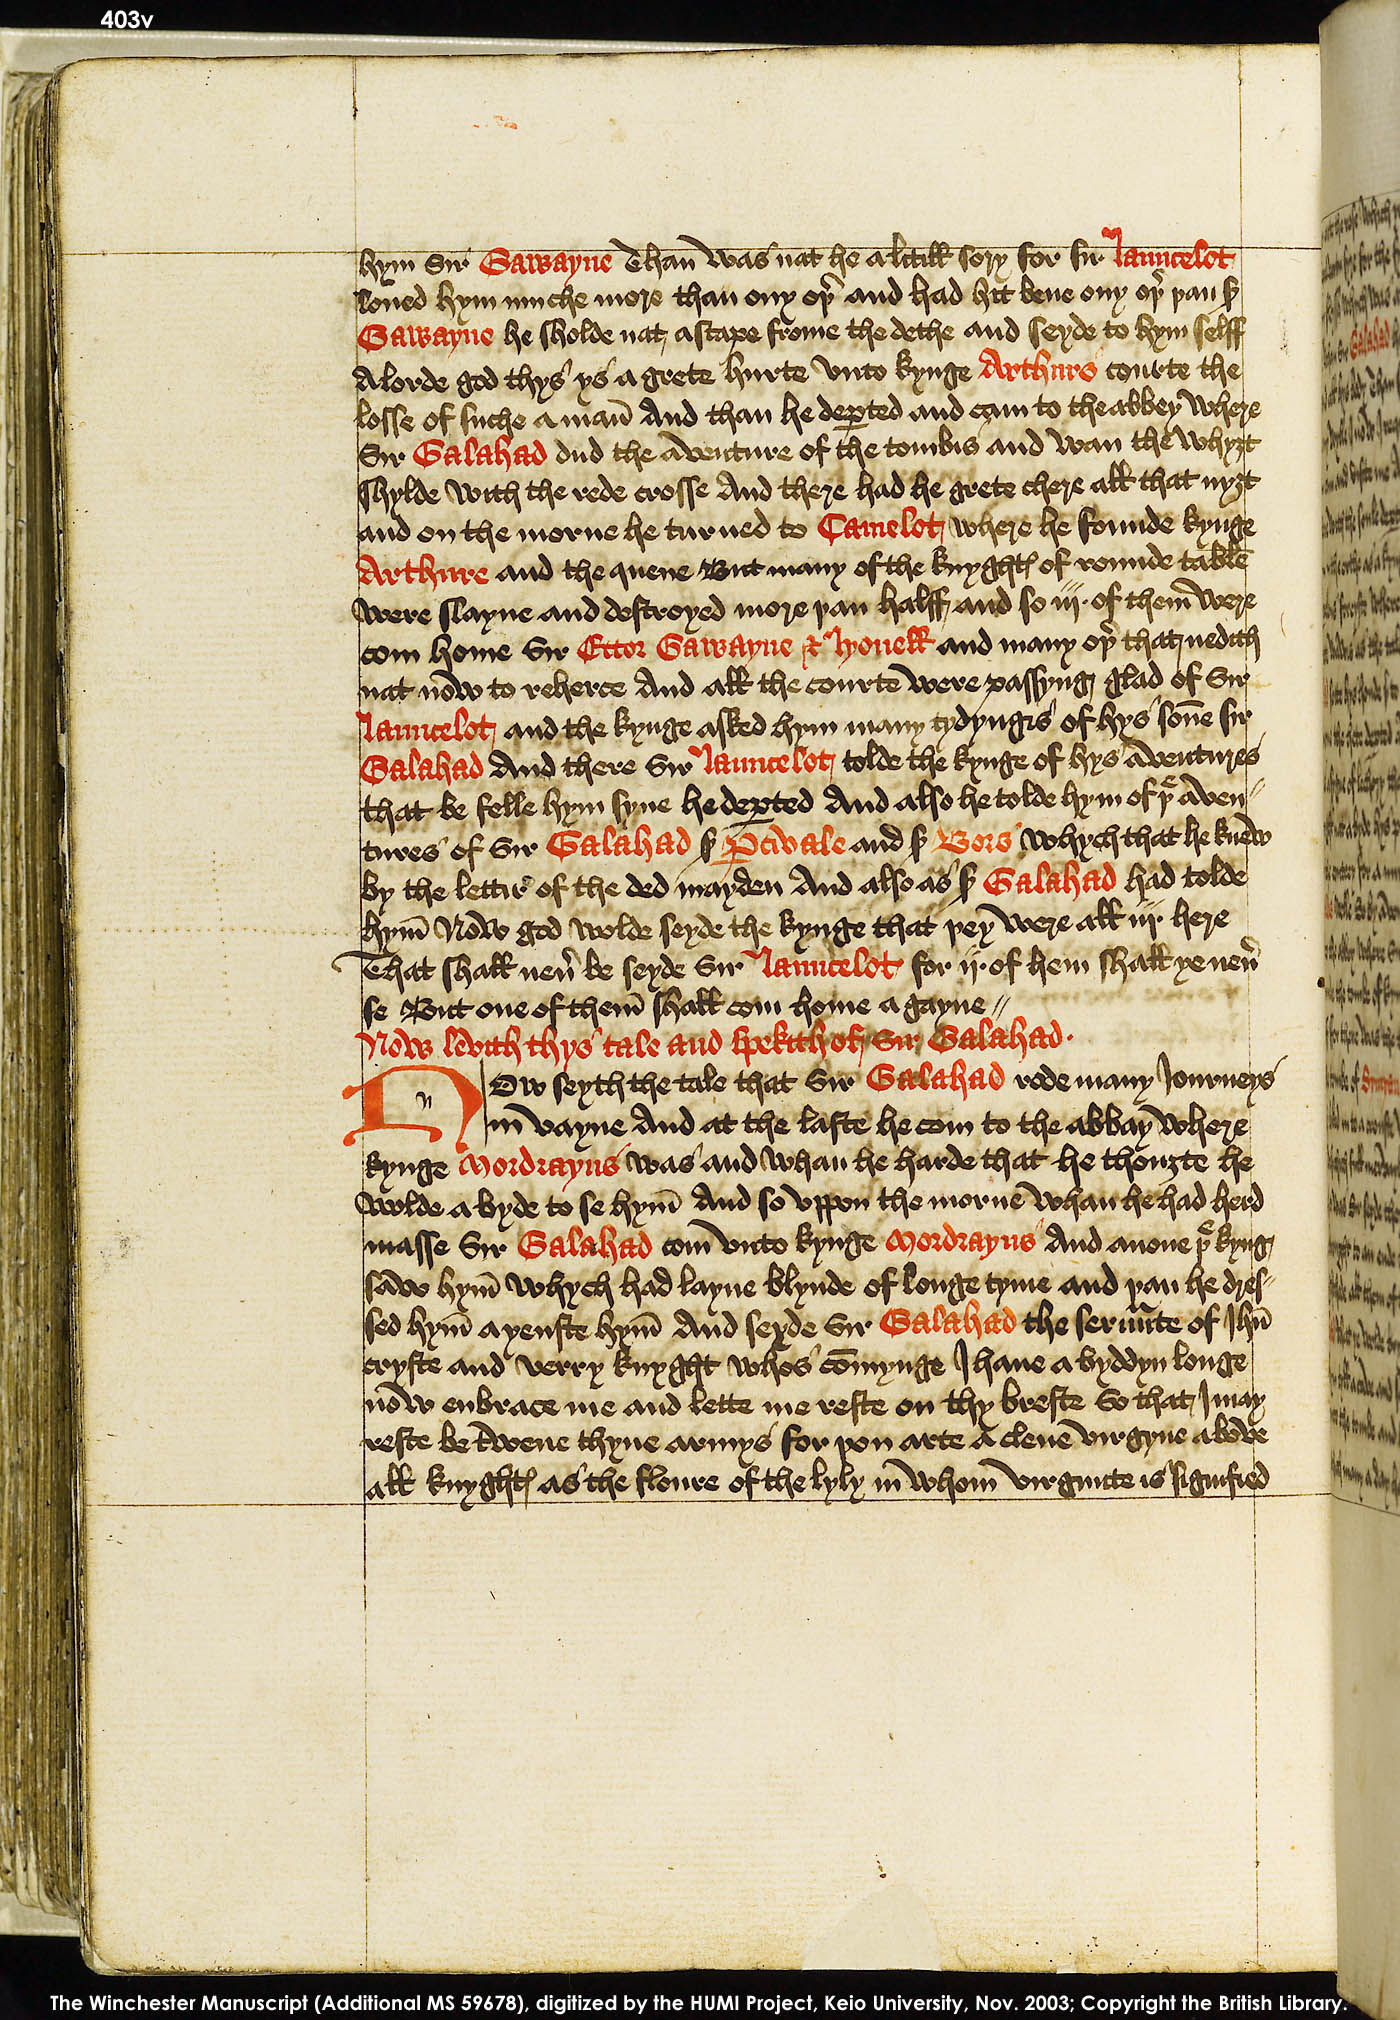 403v
hym Sir Gawayne Than was nat he a litill sory for sir Launcelot
loued hym muche more than ony oþ̲er and had hit bene ony oþer þan sir
Gawayne he sholde nat ascape frome the dethe and seyde to hym selff
A lorde god thys ys a grete hurte vnto kynge Arthurs courte the
losse of suche a man̄ And than he dep̲ted and cam to the abbey where
Sir Galahad dud the aventure of the tombis and wan the whyȝt
shylde with the rede crosse And there had he grete chere all that nyȝt
and on the morne he turned to Camelot where he founde kynge
Arthure and the quene But many of the knyghtes of rounde table
were slayne and destroyed more þan halff and so iij· of them̄ were
com home Sir Ettor Gawayne & Lyonell and many oþer that nedith
nat now to reherce And all the courte were passyng glad of Sir
Launcelot and the kynge asked hym many tydyngis of hys son̄e sir
Galahad And there Sir Launcelot tolde the kynge of hys aventures
that be felle hym syne he dep̲ted And also he tolde hym of þe aven-
tures of Sir Galahad sir P̲civale and sir Bors whych that he knew
by the lettir of the ded mayden And also as sir Galahad had tolde
hym̄ Now god wolde seyde the kynge that þey were all iij· here
That shall neuer be seyde Sir Launcelot for ij· of hem shall ye neuer
se But one of them̄ shall com home a gayne //
Now levith thys tale and spekith of Sir Galahad·
Now seyth the tale that Sir Galahad rode many Journeys
in vayne And at the laste he com to the abbay where
kynge Mordrayns was and whan he harde that he thouȝte he
wolde a byde to se hym̄ And so vppon the morne whan he had herd
masse Sir Galahad com̄ vnto kynge Mordrayns And anone þe kyng
saw hym̄ whych had layne blynde of longe tyme and þan he dres-
sed hym̄ ayenste hym̄ And seyde Sir Galahad the seruaunte of Jhū
cryste and verry knyght whos com̄ynge I haue a byddyn longe
now enbrace me and lette me reste on thy breste so that I may
reste be twene thyne armys for þou arte a clene virgyne above
all knyghtes as the floure of the lyly in whom virginite is signified
The Winchester Manuscript (Additional MS 59678), digitized by the HUMI Project, Keio University, Nov. 2003; Copyright the British Library.